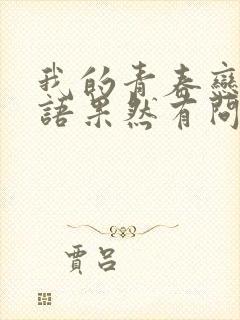 我的青春戀
語果然有問
賈呂